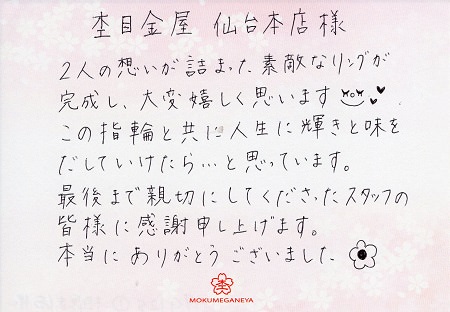 杢目金屋 仙台本店 様
2人の想いが詰まった素敵なリングが
完成し、大変嬉しく思います
この指輪と共に人生に輝きと味を
だしていけたら…と思っています。
最後まで親切にしてくださったスタッフの
皆様に感謝申し上げます。
本当にありがとうございました
杢
MOKUMEGANEYA